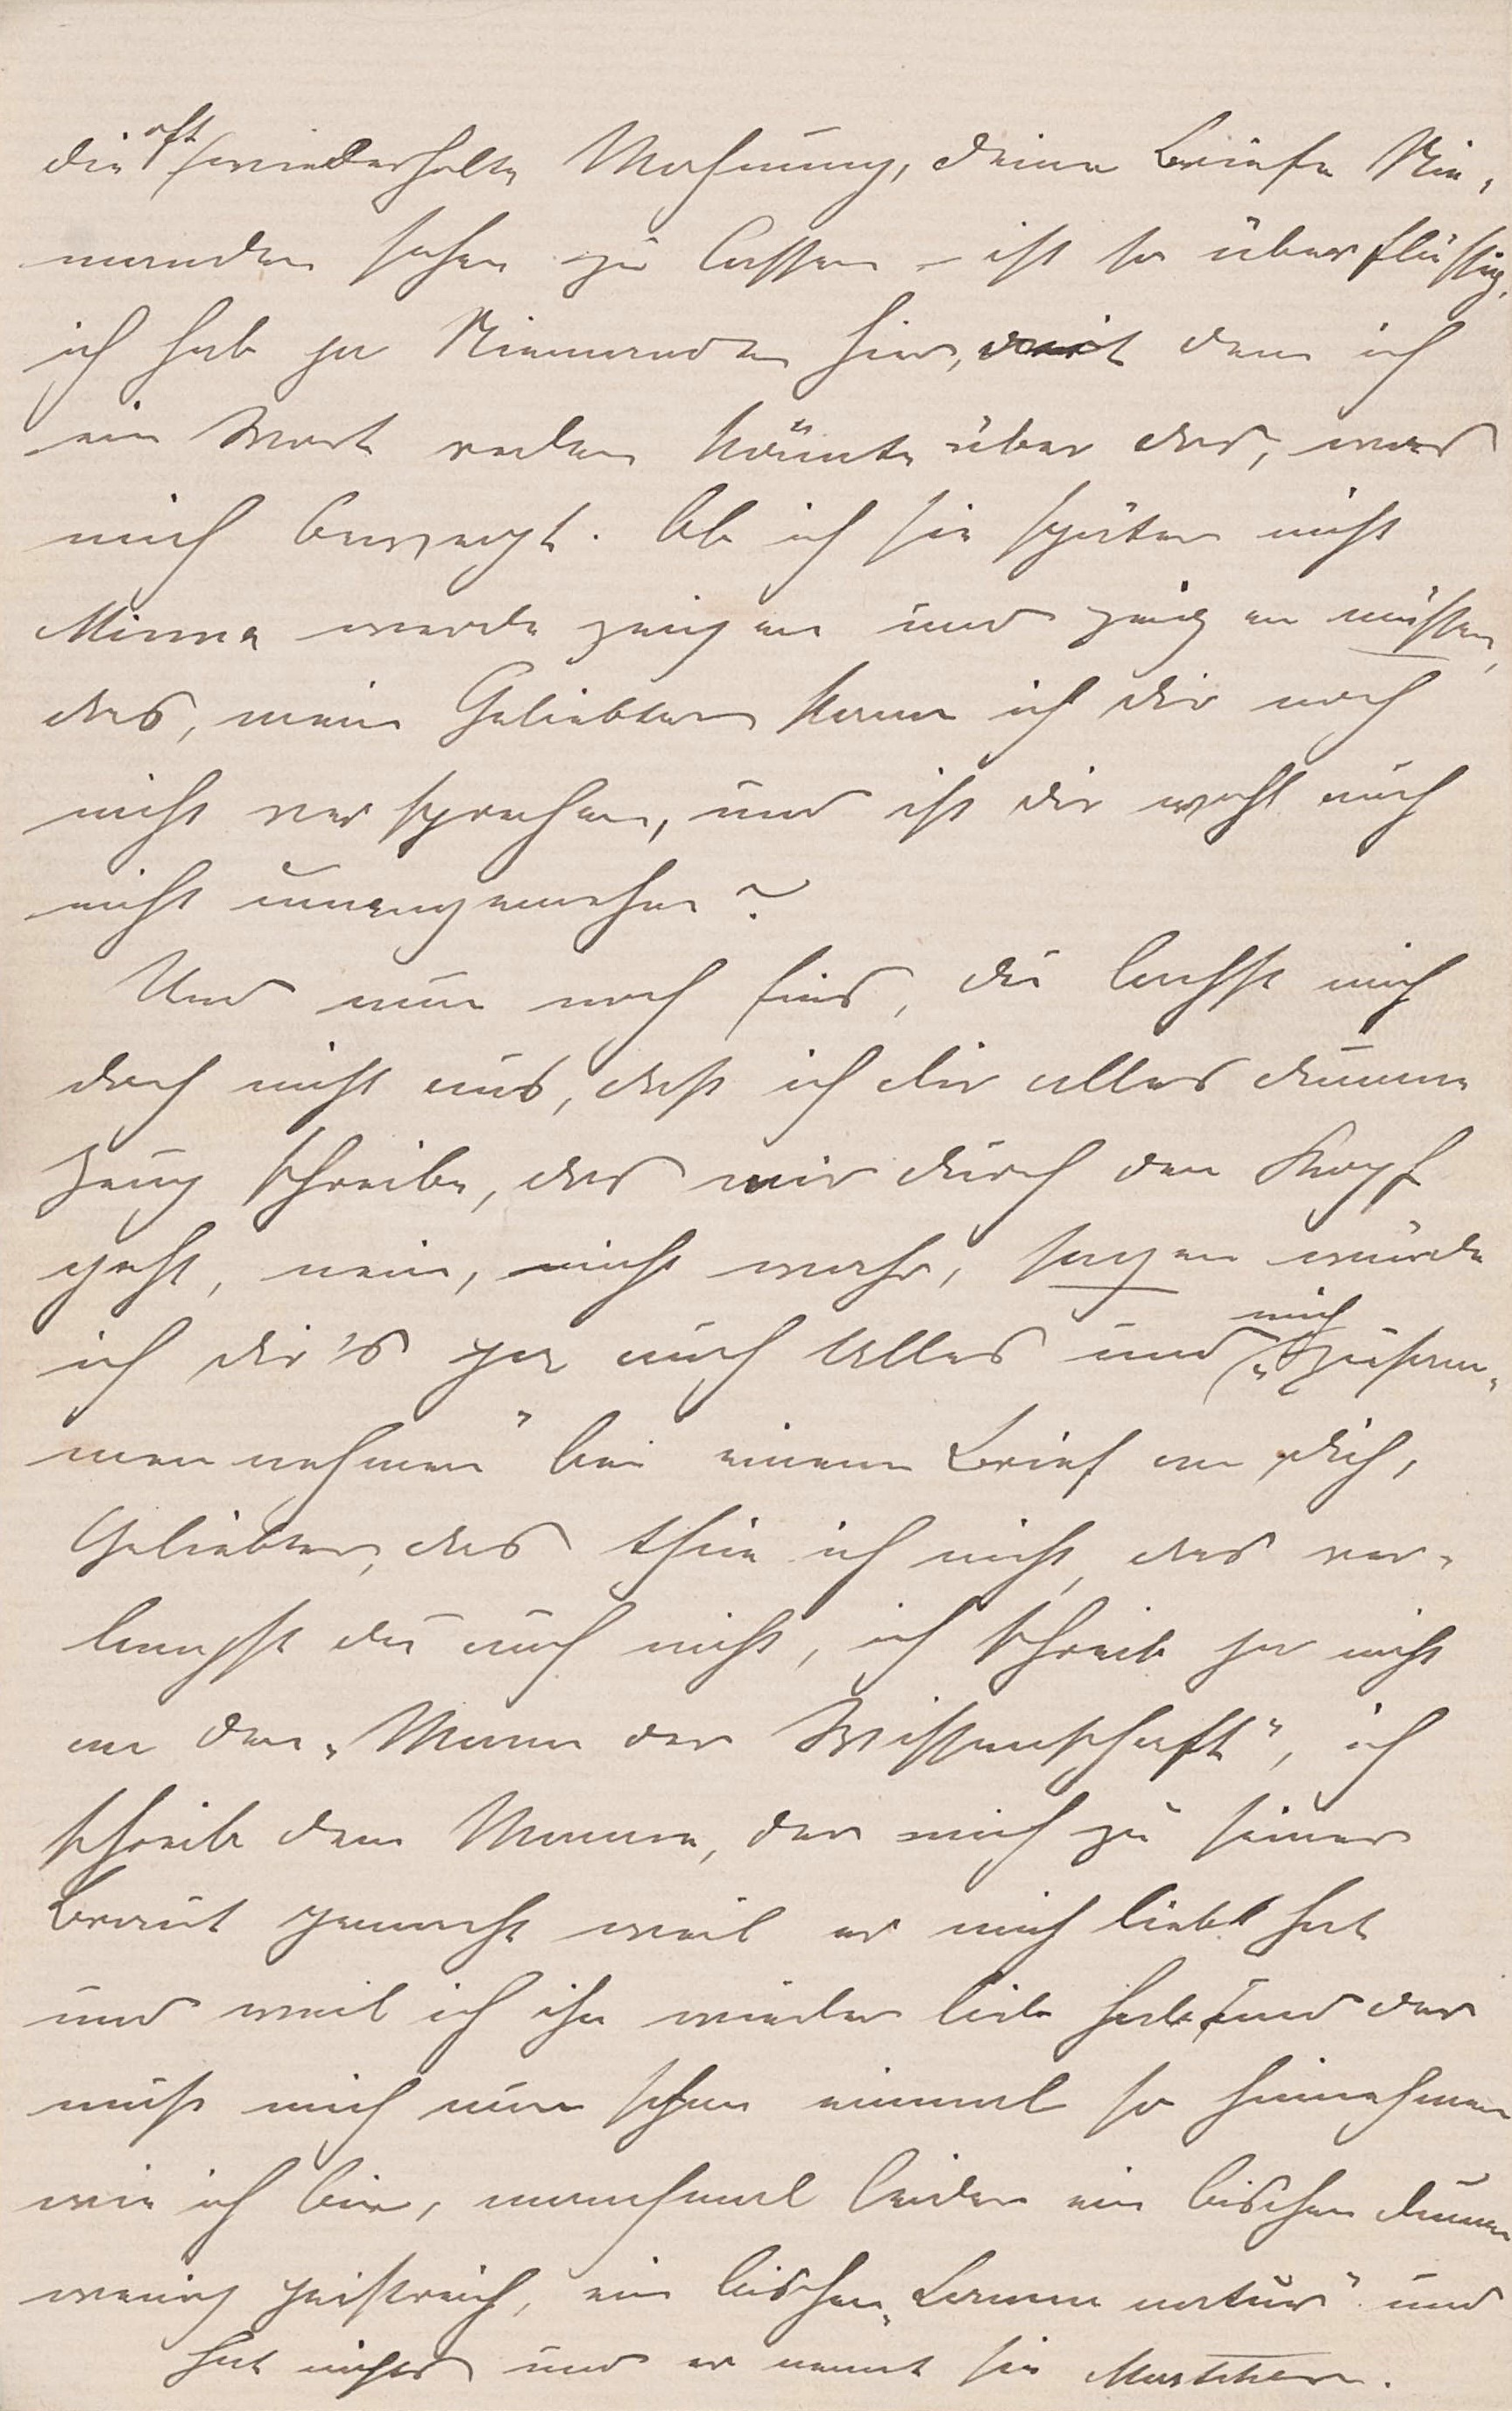 die oft wiederholte Mahnung, deine Briefe Nie-
manden sehen zu lassen – ist so überflüssig,
ich hab ja Niemanden hier, mit dem ich
ein Wort reden könnte über das, was
mich bewegt. Ob ich sie später nicht
Minna werde zeigen und zeigen müssen,
das, mein Geliebter kann ich dir noch
nicht versprechen, und ist dir wohl auch
nicht unangenehm?
Und nun noch Eins, du lachst mich
doch nicht aus, daß ich dir alles dumme
Zeug schreibe, das mir durch den Kopf
geht, nein, nicht wahr, sagen würde
ich dir's ja auch Alles und mich „zusam-
men nehmen" bei einem Brief an dich,
Geliebter, das thue ich nicht, das ver-
langst du auch nicht, ich schreib ja nicht
an den „Mann der Wissenschaft", ich
schreib dem Manne, der mich zu seiner
Braut gemacht weil er mich liebt hat
und weil ich ihn wieder lieb hab und der
muß mich nun schon einmal so hinnehmen
wie ich bin, manchmal leider ein bischen dumm
wenig geistreich, ein bischen „ natur" und
hat nichts und er nennt sie Marthchen.